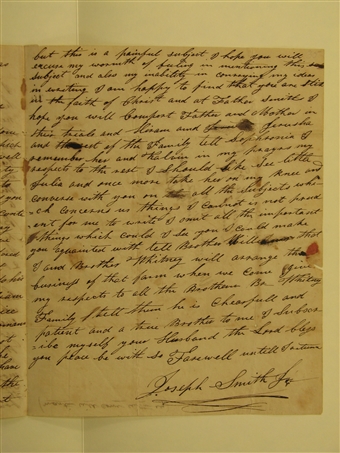 but this is a painful subject I hope you will
excuse my warmth of feeling in mentioning this
subject and also my inability in conveying my ideas
in writing I am happy to find that you are still
in the faith of Christ and at Father Smiths I
hope you will Comfort Father and Mother in
their trials and Hiram and Jerusha
and the rest of the Family tell Sophronia I
remember her and Kalvin in my prayrs my
respects to the rest I should Like See little
Julia and once more take her on my knee and
converse with you on all the subjects whi
ch concerns us things I cannot is not prud
ent for me to write I omit all the important
things which could I see you I could make
you acquainted with tell Brother that
I and Brother Whitney will arrange the
business of that farm when we Come give
my respects to all the Brotheren Br. Whitney
Family tell them he is Chearfull and
patient and a true Brother to me I subscr
ibe my self your Husband the Lord bless
you peace be with so Farewell untill I return
Joseph Smith Jr